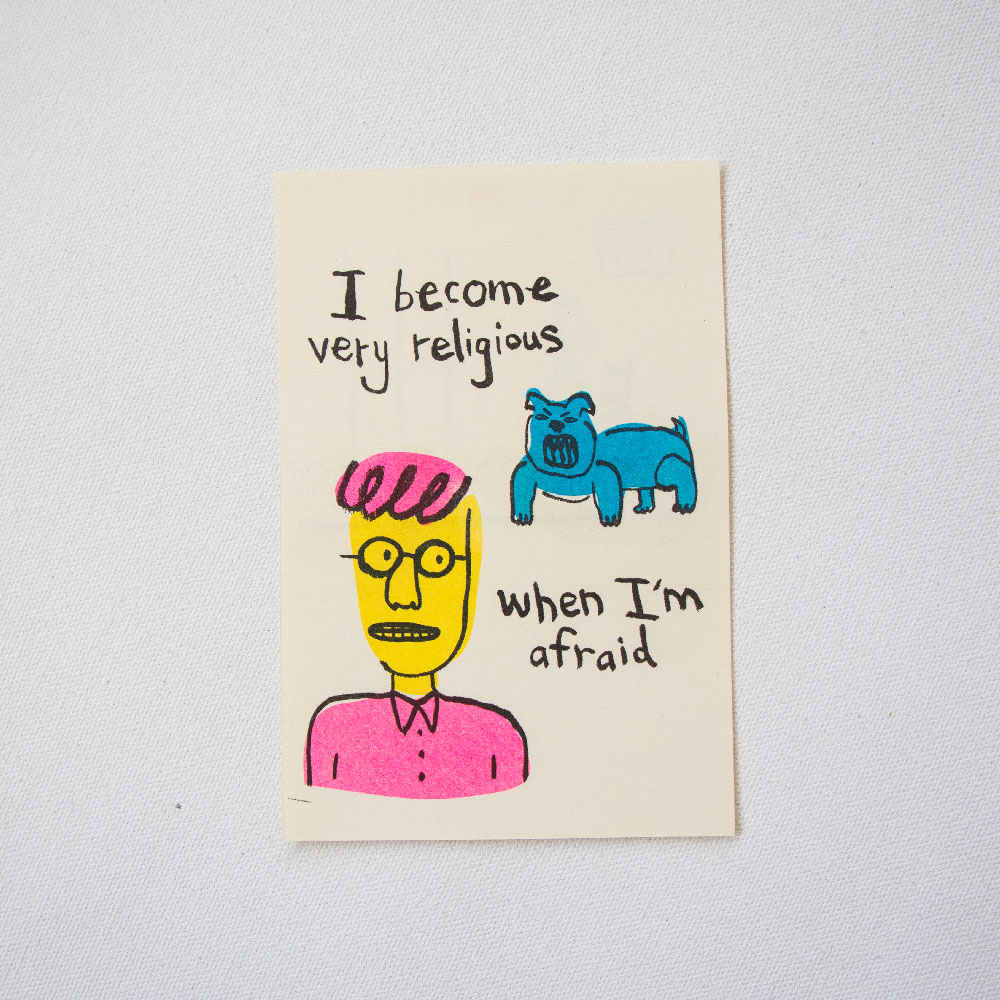 I become
very religious
when I'm
afraid